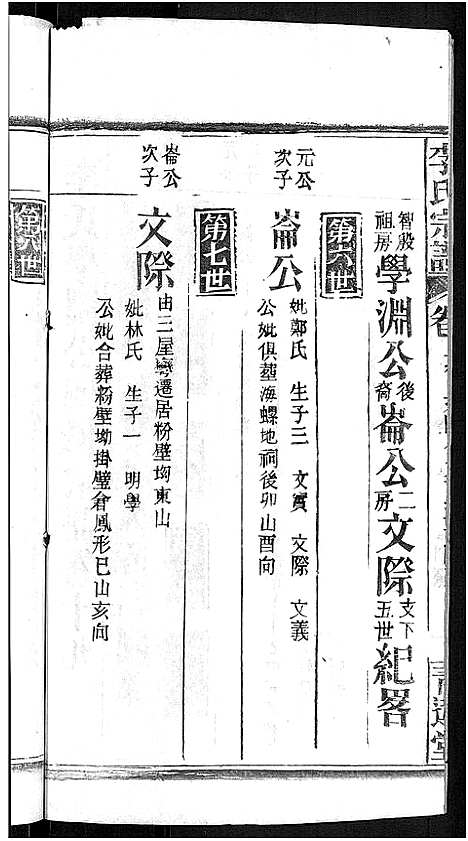 李氏宗譜 卷
智殿祖房 學淵公 後裔 崙公 二房 文際 支下五世 紀畧
第六世
元公次子
崙公
妣鄭氏 生子三 文實 文際 文義
公妣俱葬海螺地祠後卯山酉向
第七世
崙公次子
文際
由三屋彎遷居粉壁坳東山
妣林氏 生子一 明學
公妣合葬粉壁坳掛壁倉鳳形巳山亥向
第八世